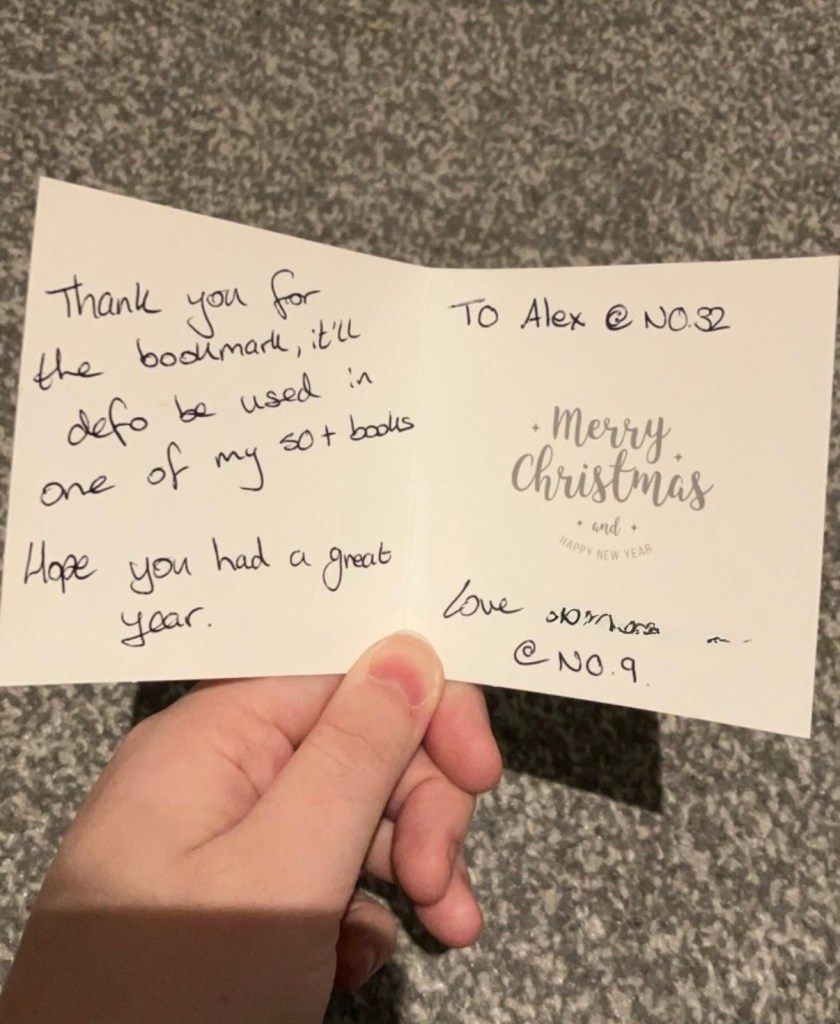 Thank you for
the bookmark, it'll
defo be used in
one of my 50+ books
Hope you had a great
year.
To Alex @ NO.32
Merry
Christmas
and
HAPPY NEW YEAR
Love
@ NO.9.